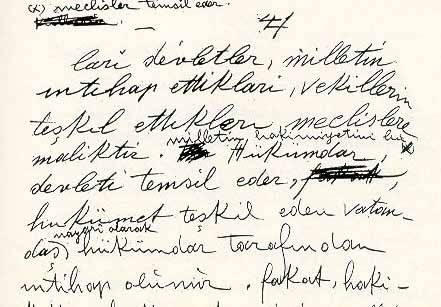 (x) meclisler temsil eder.
41
lari devletler, milletin
intihap ettikleri, vekillerin
teşkil ettikleri meclislere
milletin hakimiyetini bu
maliktir. Hükümdar,
devleti temsil eder,
hukümet teşkil eden vatan-
nazari olarak
daş) hükümdar tarafından
intihap olunur. fakat, haki-